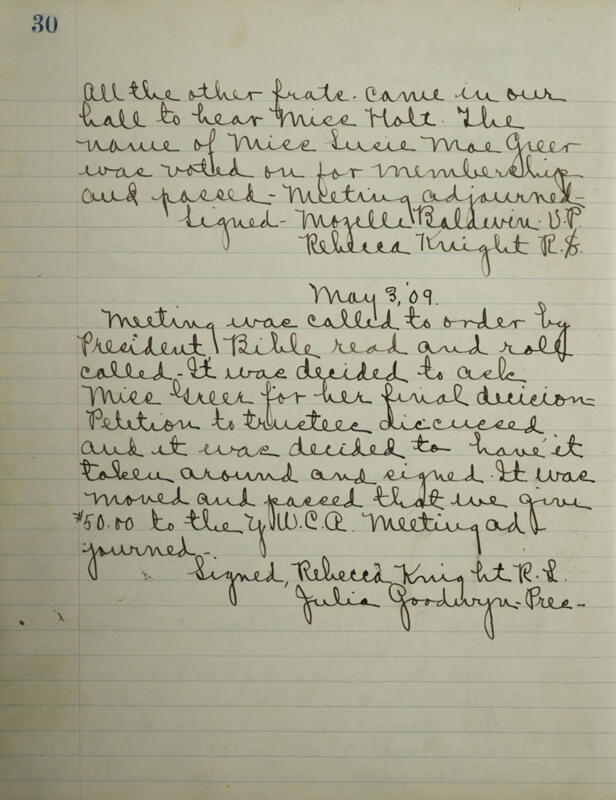 30
All the other frats. came in our
hall to hear Miss Holt. The
name of Miss Susie Mae Greer
was voted on for membership
and passed - Meeting adjourned -
Signed - Mozelle Baldwin. V.P.
Rebecca Knight R.S.
May 3, '09.
Meeting was called to order by
President, Bible read and roll
called - It was decided to ask
Miss Greer for her final decision -
Petition to trustees discussed
and it was decided to have it
taken around and signed. It was
moved and passed that we give
$50.00 to the Y.W.C.A. Meeting ad
journed -
Signed, Rebecca Knight R.S.
Julia Goodwyn - Pres -